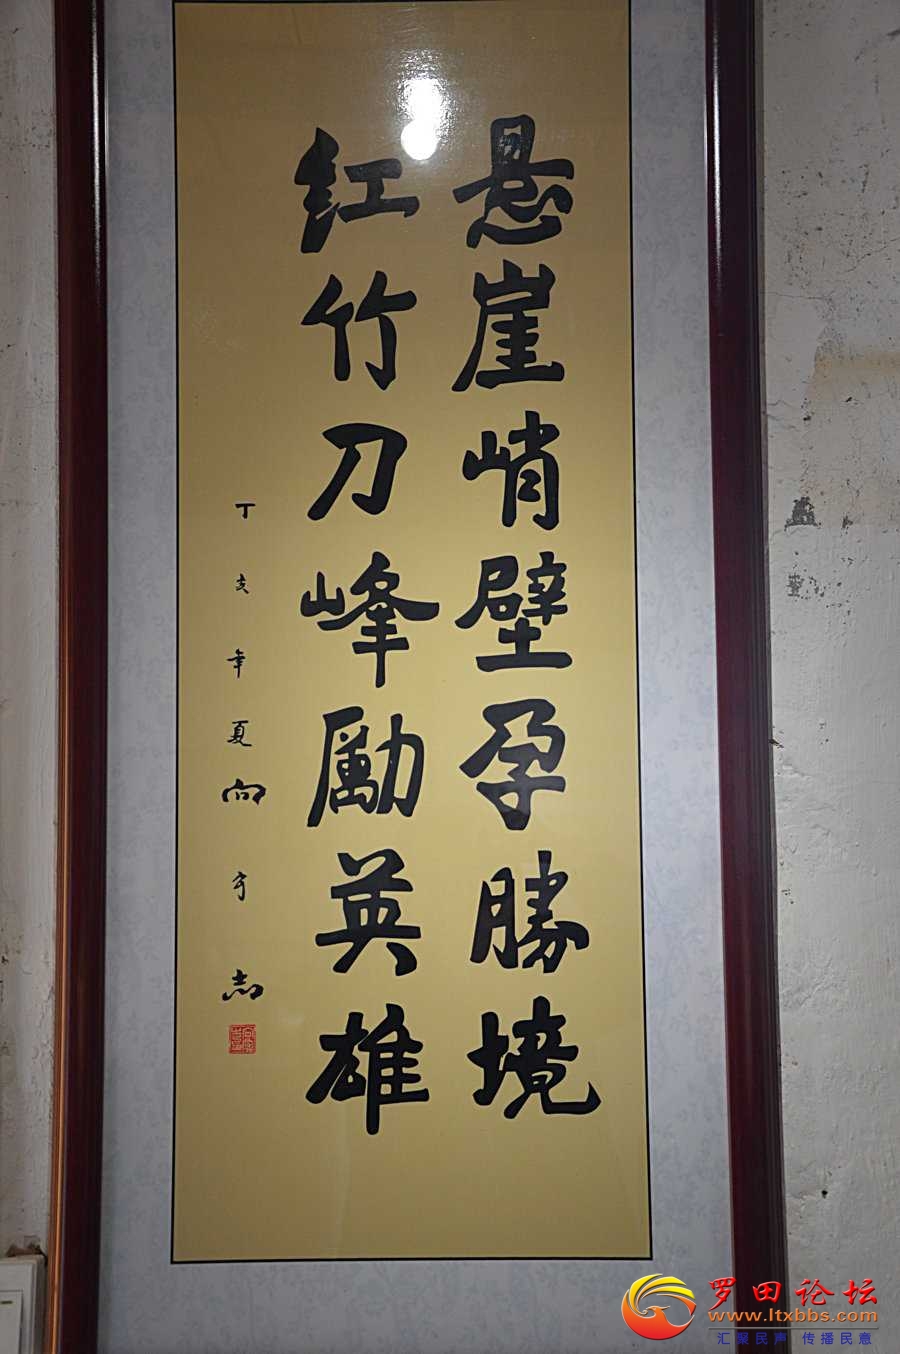 悬崖峭壁孕勝境
红竹刀峰勵英雄
丁亥年夏向守志
罗田论坛
www.ltxbbs.com
汇聚民声 传播民意